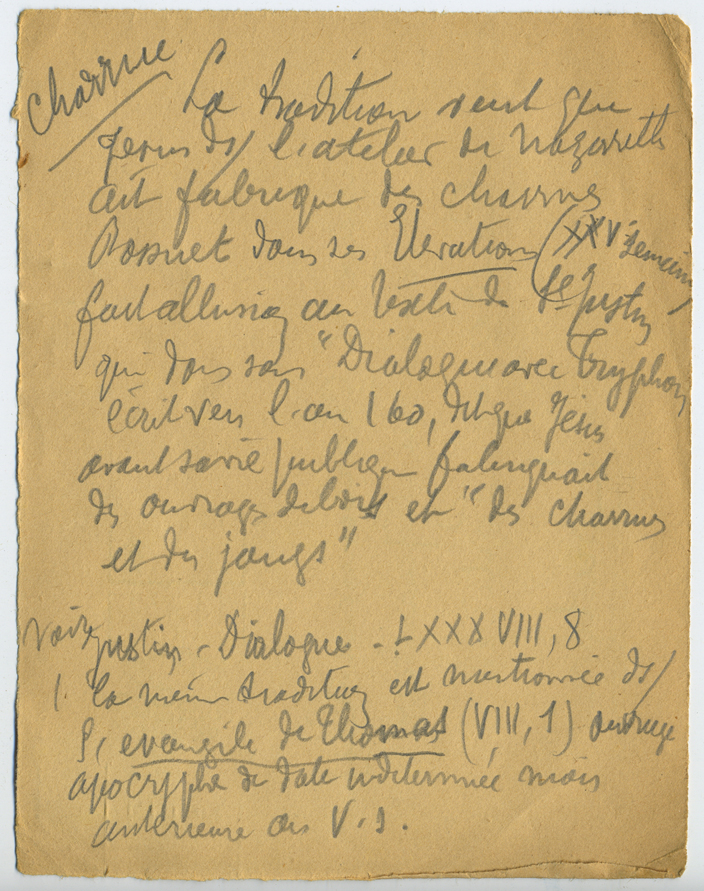 Charrue
La tradition veut que
Jesus ds/ l'atelier de Nazareth
ait fabrique des charrues
Bossuet dans ses Elevations (XXVe semaine)
fait allusion au texte de St Justin
qui dans son "Dialogue avec Tryphon
écrit vers l'an 160, dit que Jésus
avant sa vie publique fabriquait
des ouvrages de bois et "des charrues
et des jougs"
Voir Justin - Dialogue - LXXXVIII, 8
1. la même tradition est mentionnée ds/
l'evangile de Thomas (VIII, 1) ouvrage
apocryphe de date indeterminée mais
anterieure au V.s.